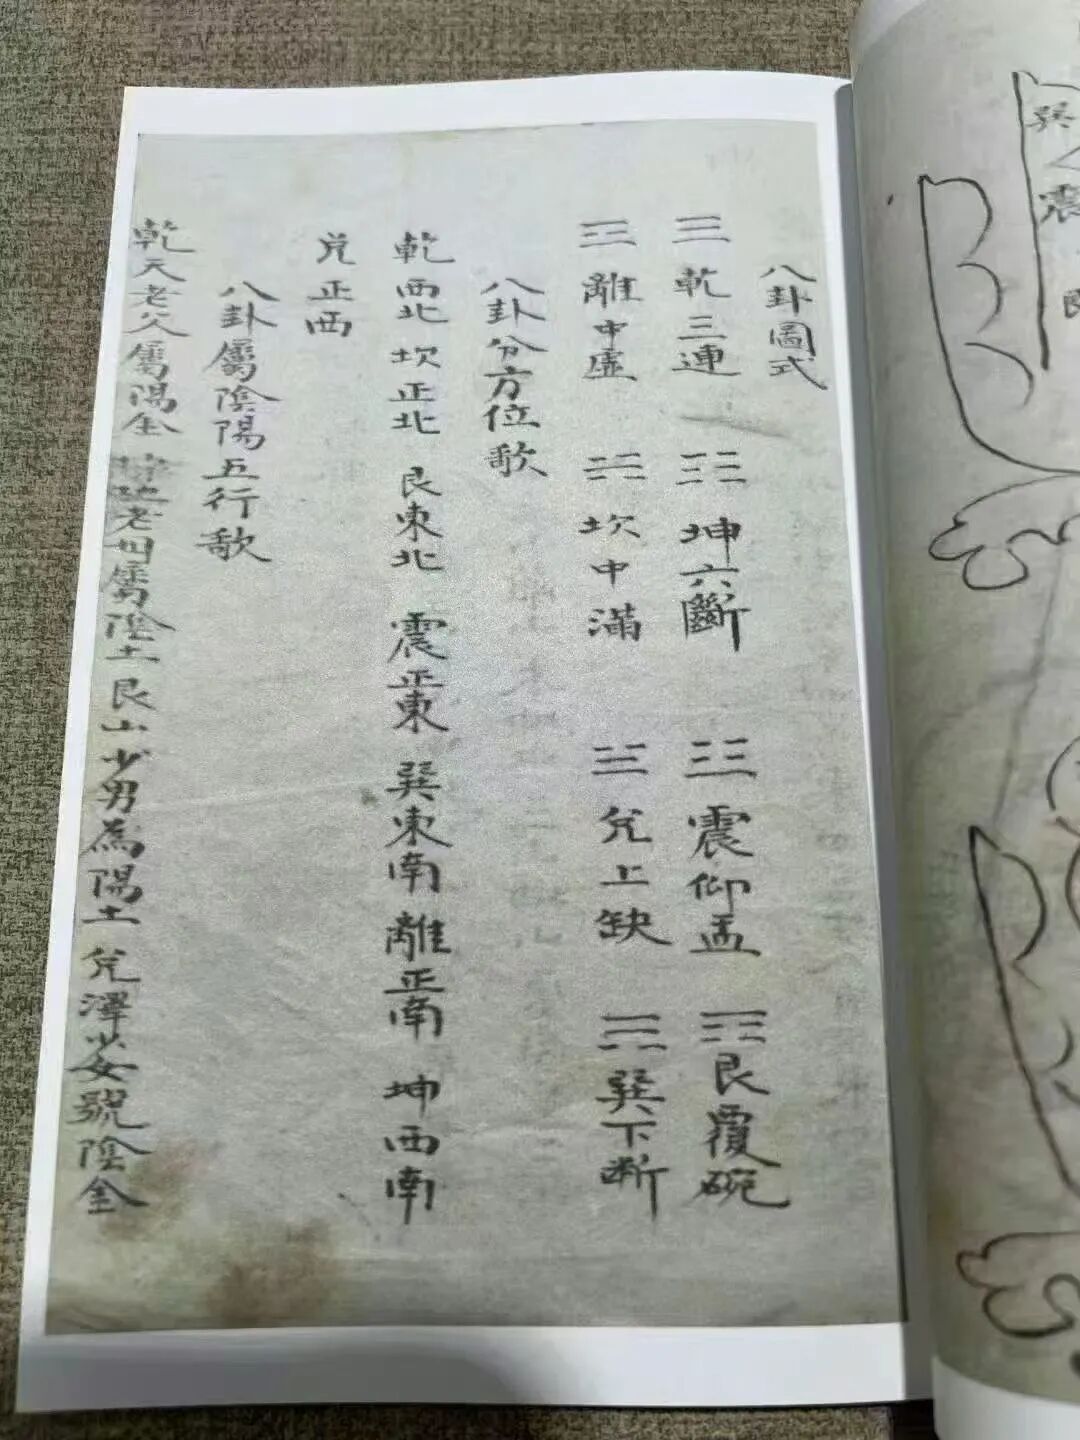 八卦圖式
☰ 乾三連 ☷ 坤六斷 ☳ 震仰盂 ☶ 艮覆碗
☲ 離中虛 ☵ 坎中滿 ☱ 兌上缺 ☴ 巽下断
八卦分方位歌
乾西北 坎正北 艮東北 震正東 巽東南 離正南 坤西南
兌正西
八卦屬陰陽五行歌
乾天老父屬陽金 地老母屬陰土 艮山少男為陽土 兌澤少女號陰金
巽
震